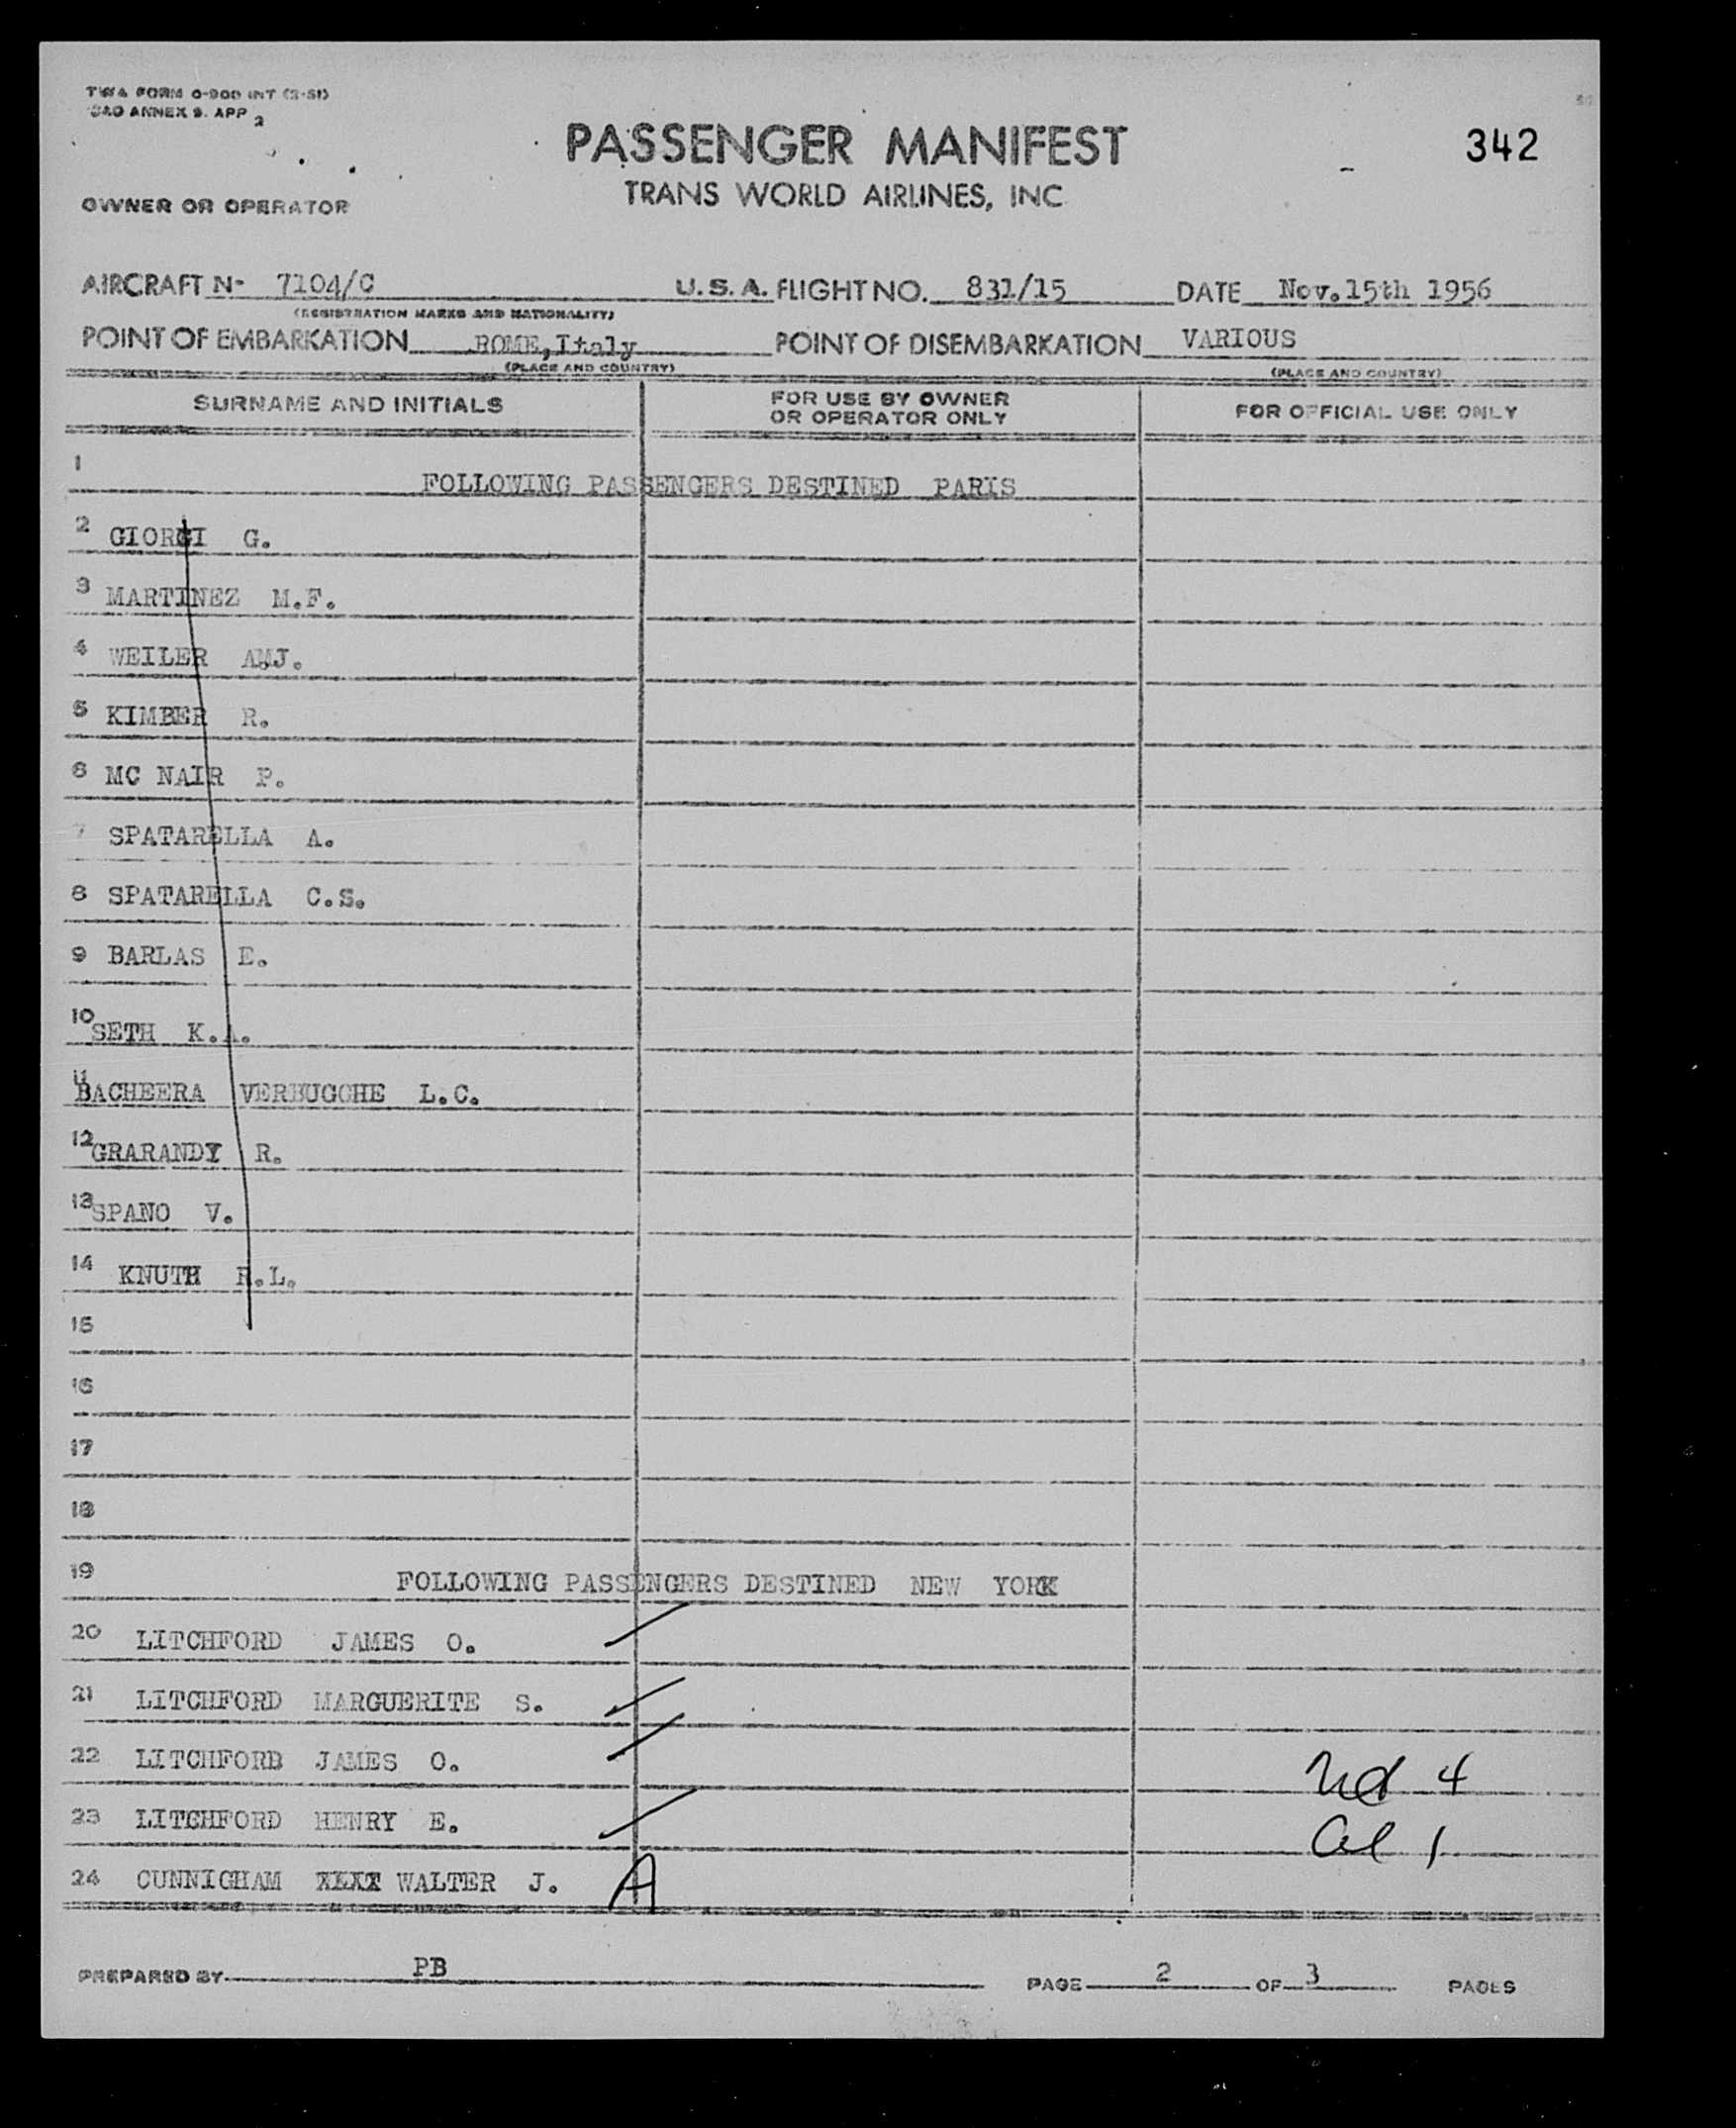 TWA FORM O-900 INT (3-51)
ICAO ANNEX 9. APP 2
PASSENGER MANIFEST
342
TRANS WORLD AIRLINES, INC
OWNER OR OPERATOR
AIRCRAFT N- 7104/C U.S.A. FLIGHT NO. 831/15 DATE Nov.15th 1956
(REGISTRATION MARKS AND NATIONALITY)
POINT OF EMBARKATION ROME,Italy POINT OF DISEMBARKATION VARIOUS
(PLACE AND COUNTRY) (PLACE AND COUNTRY)
SURNAME AND INITIALS FOR USE BY OWNER OR OPERATOR ONLY FOR OFFICIAL USE ONLY
1 FOLLOWING PASSENGERS DESTINED PARIS
2 GIORGI G.
3 MARTINEZ M.F.
4 WEILER J.
5 KIMBER R.
6 MC NAIR P.
7 SPATARELLA A.
8 SPATARELLA C.S.
9 BARLAS E.
10 SETH K.A.
11 BACHEERA VERBUGGHE L.C.
12 GRARANDY R.
13 SPANO V.
14 KNUTH R.L.
15
16
17
18
19 FOLLOWING PASSENGERS DESTINED NEW YORK
20 LITCHFORD JAMES O.
21 LITCHFORD MARGUERITE S.
22 LITCHFORB JAMES O.
23 LITCHFORD HENRY E.
24 CUNNIGHAM WALTER J. A
4
al 1
PREPARED BY PB PAGE 2 OF 3 PAGES